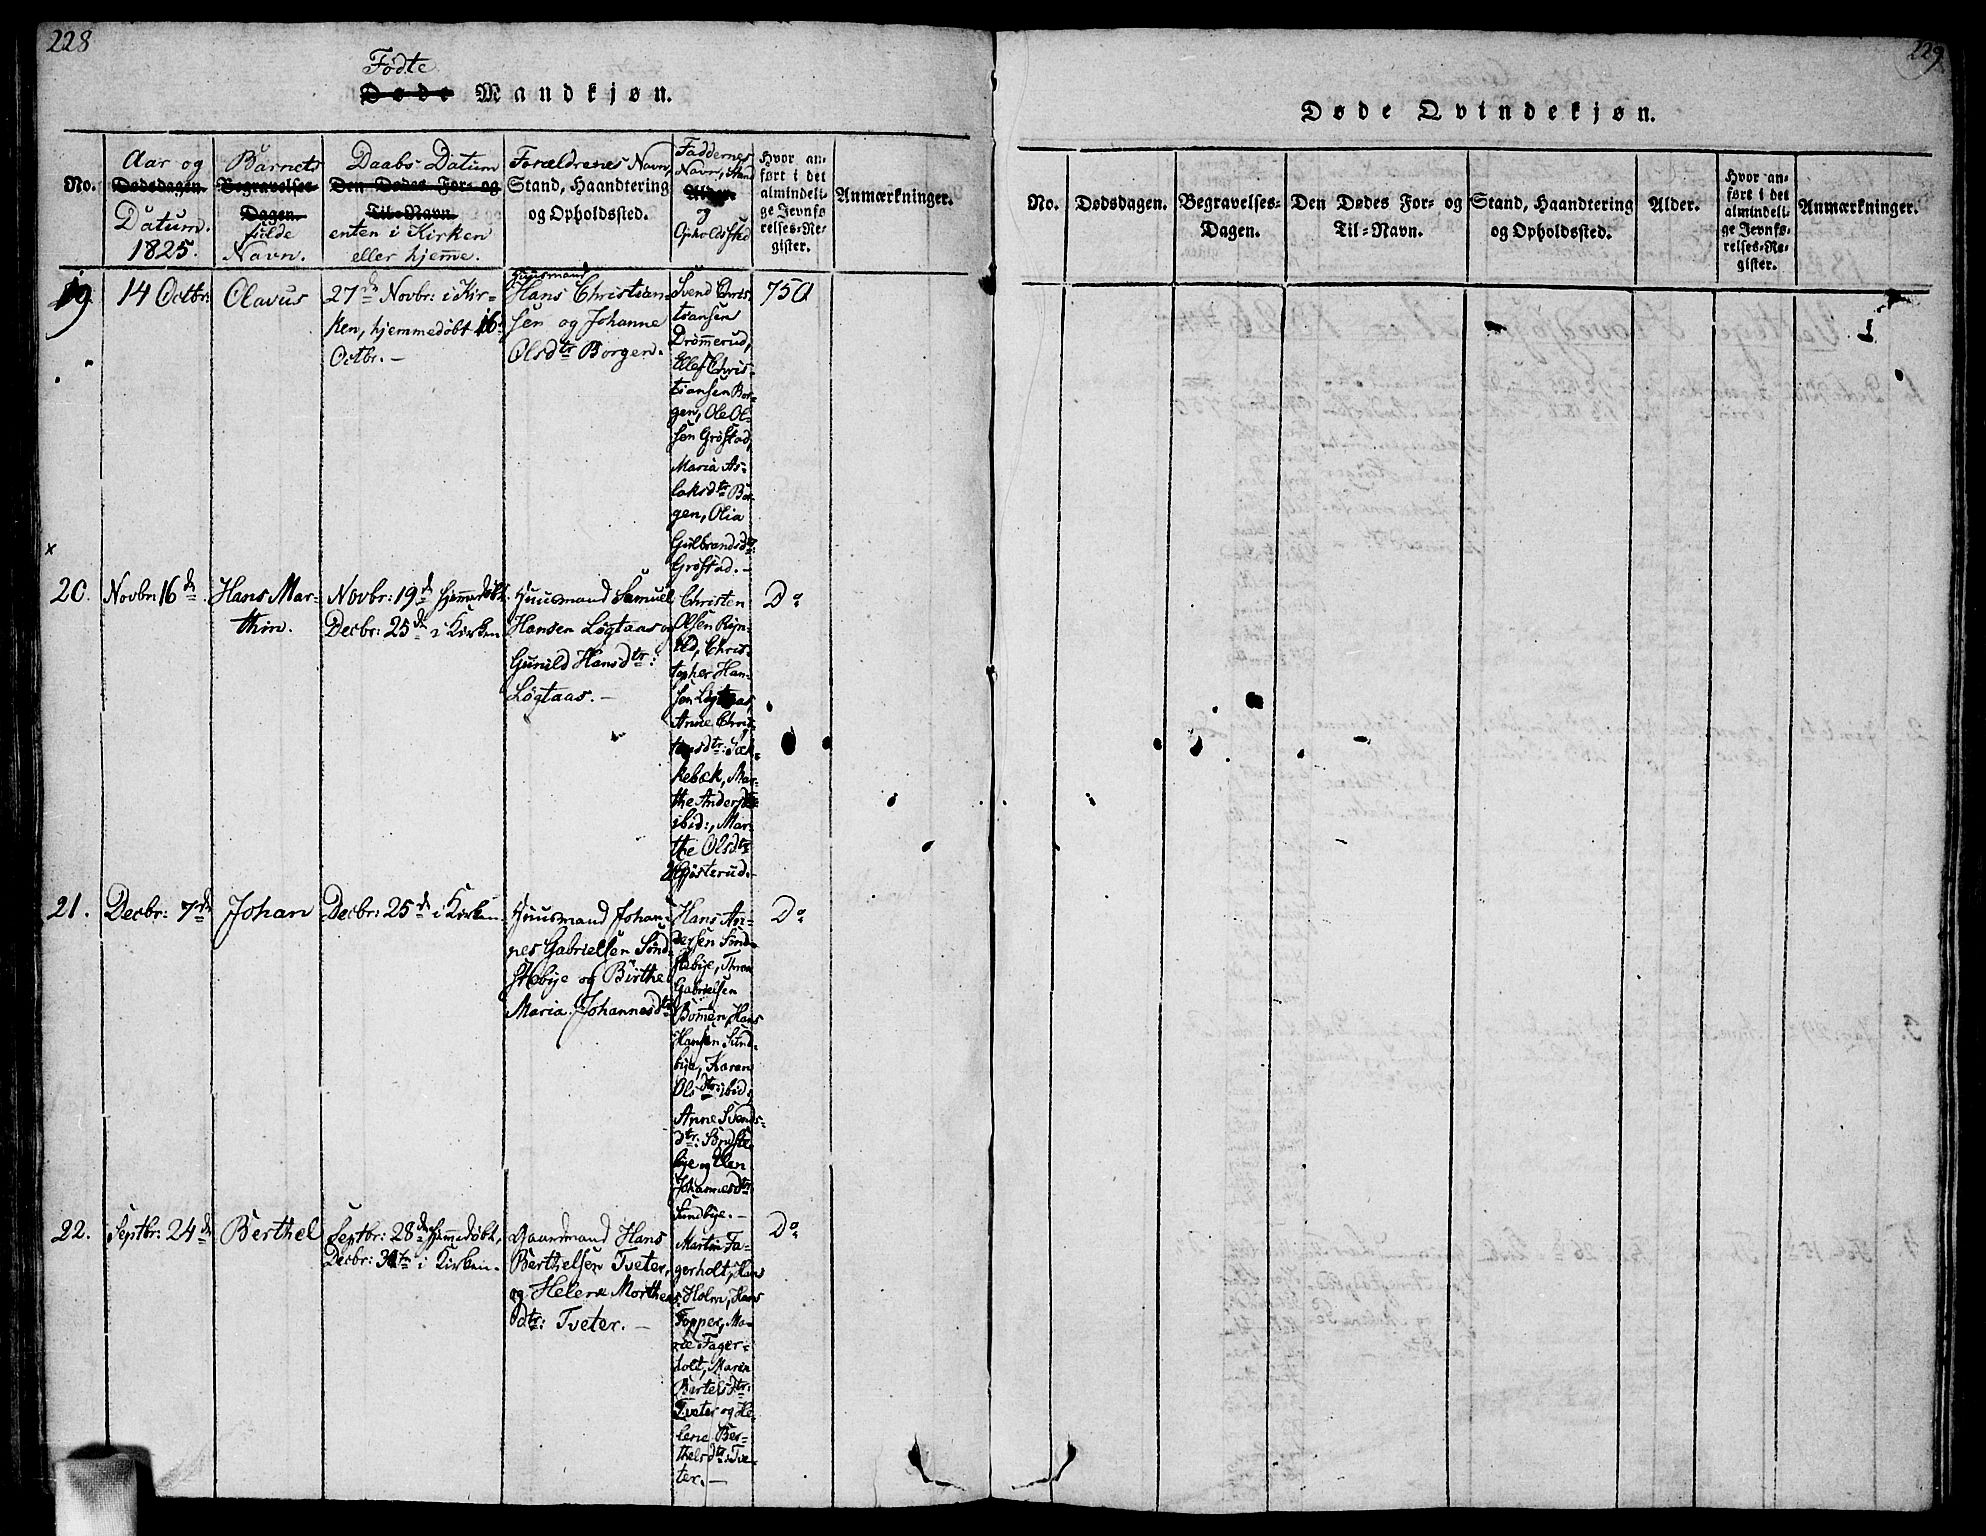 228
Fødte
Døde Mandkjøn.
No.
Aar og
Dødsdagen.
Datum.
1825.
Barnets
Begravelses-
Dagen.
fulde
Navn.
Daabs Datum
Den Dødes For- og
Til-Navn.
enten i Kirken
eller hjemme.
Forældrenes Navn,
Stand, Haandtering
og Opholdssted.
Faddernes
Navn, Stand
Alder.
og
Opholdssted
Hvor an-
ført i det
almindeli-
ge Jevnfø-
relses-Re-
gister.
Anmærkninger.
19
14 Octbr:
Olavus
27de Novbr: i Kir-
ken, hjemmedøbt 16
Octbr. –
Huusmand
Hans Christian-
sen og Johanne
Olsdtr Borgen.
Svend Chris-
tiansen
Drömmerud,
Ellef Chris-
tiansen Bor-
gen, Ole Ol-
sen Gröstad,
Maria As-
laksdtr Bor-
gen, Olia
Gulbrandsdtr
Gröstad. –
750
x
20.
Novbr: 16de
Hans Mar-
thin.
Novbr: 19de hjemmedöbt.
Decbr: 25de i Kirken
Huusmand Samuel
Hansen Løgtaas og
Gunild Hansdtr:
Løgtaas. –
Christen
Olsen
Chris-
topher Han-
sen Løgtaas,
Anne Chris-
tensdtr:
kebæk, Mar-
the Andersdtr
ibid:, Mar-
the Olsdtr
Do
21.
Decbr: 7de
Johan
Decbr: 25de i Kirken
Huusmand Johan-
nes Gabrielsen Sönd-
stebye og Birthe
Maria Johannesdtr
Hans An-
dersen Sönd-
stebye, Thron
Gabrielsen
Bommen, Hans
Hansen Sund-
bye, Karen
Olsdtr ibid
Anne Svends-
dtr: Söndste-
bye og Elen
Johannesdtr
Sundbye. –
Do
22.
Septbr: 24de
Berthel
Septbr: 28de hjemmedöbt,
Decbr: 31te i Kirken.
Gaardmand Hans
Berthelsen Tveter,
og Helene Morthens
dtr: Tveter. –
Martin Fa-
gerholt, Hans
Holm, Hans
Topper, Ma-
rie Fager-
holt, Maren
Bertelsdtr:
Tveter og He-
lene Ber-
thelsdtr: Tve-
ter. –
Do
229
Døde Qvindekjøn.
No.
Dødsdagen.
Begravelses-
Dagen.
Den Dødes For- og
Til-Navn.
Stand, Haandtering
og Opholdssted.
Alder.
Hvor an-
ført i det
almindeli-
ge Jevnfø-
relses-Re-
gister.
Anmærkninger.